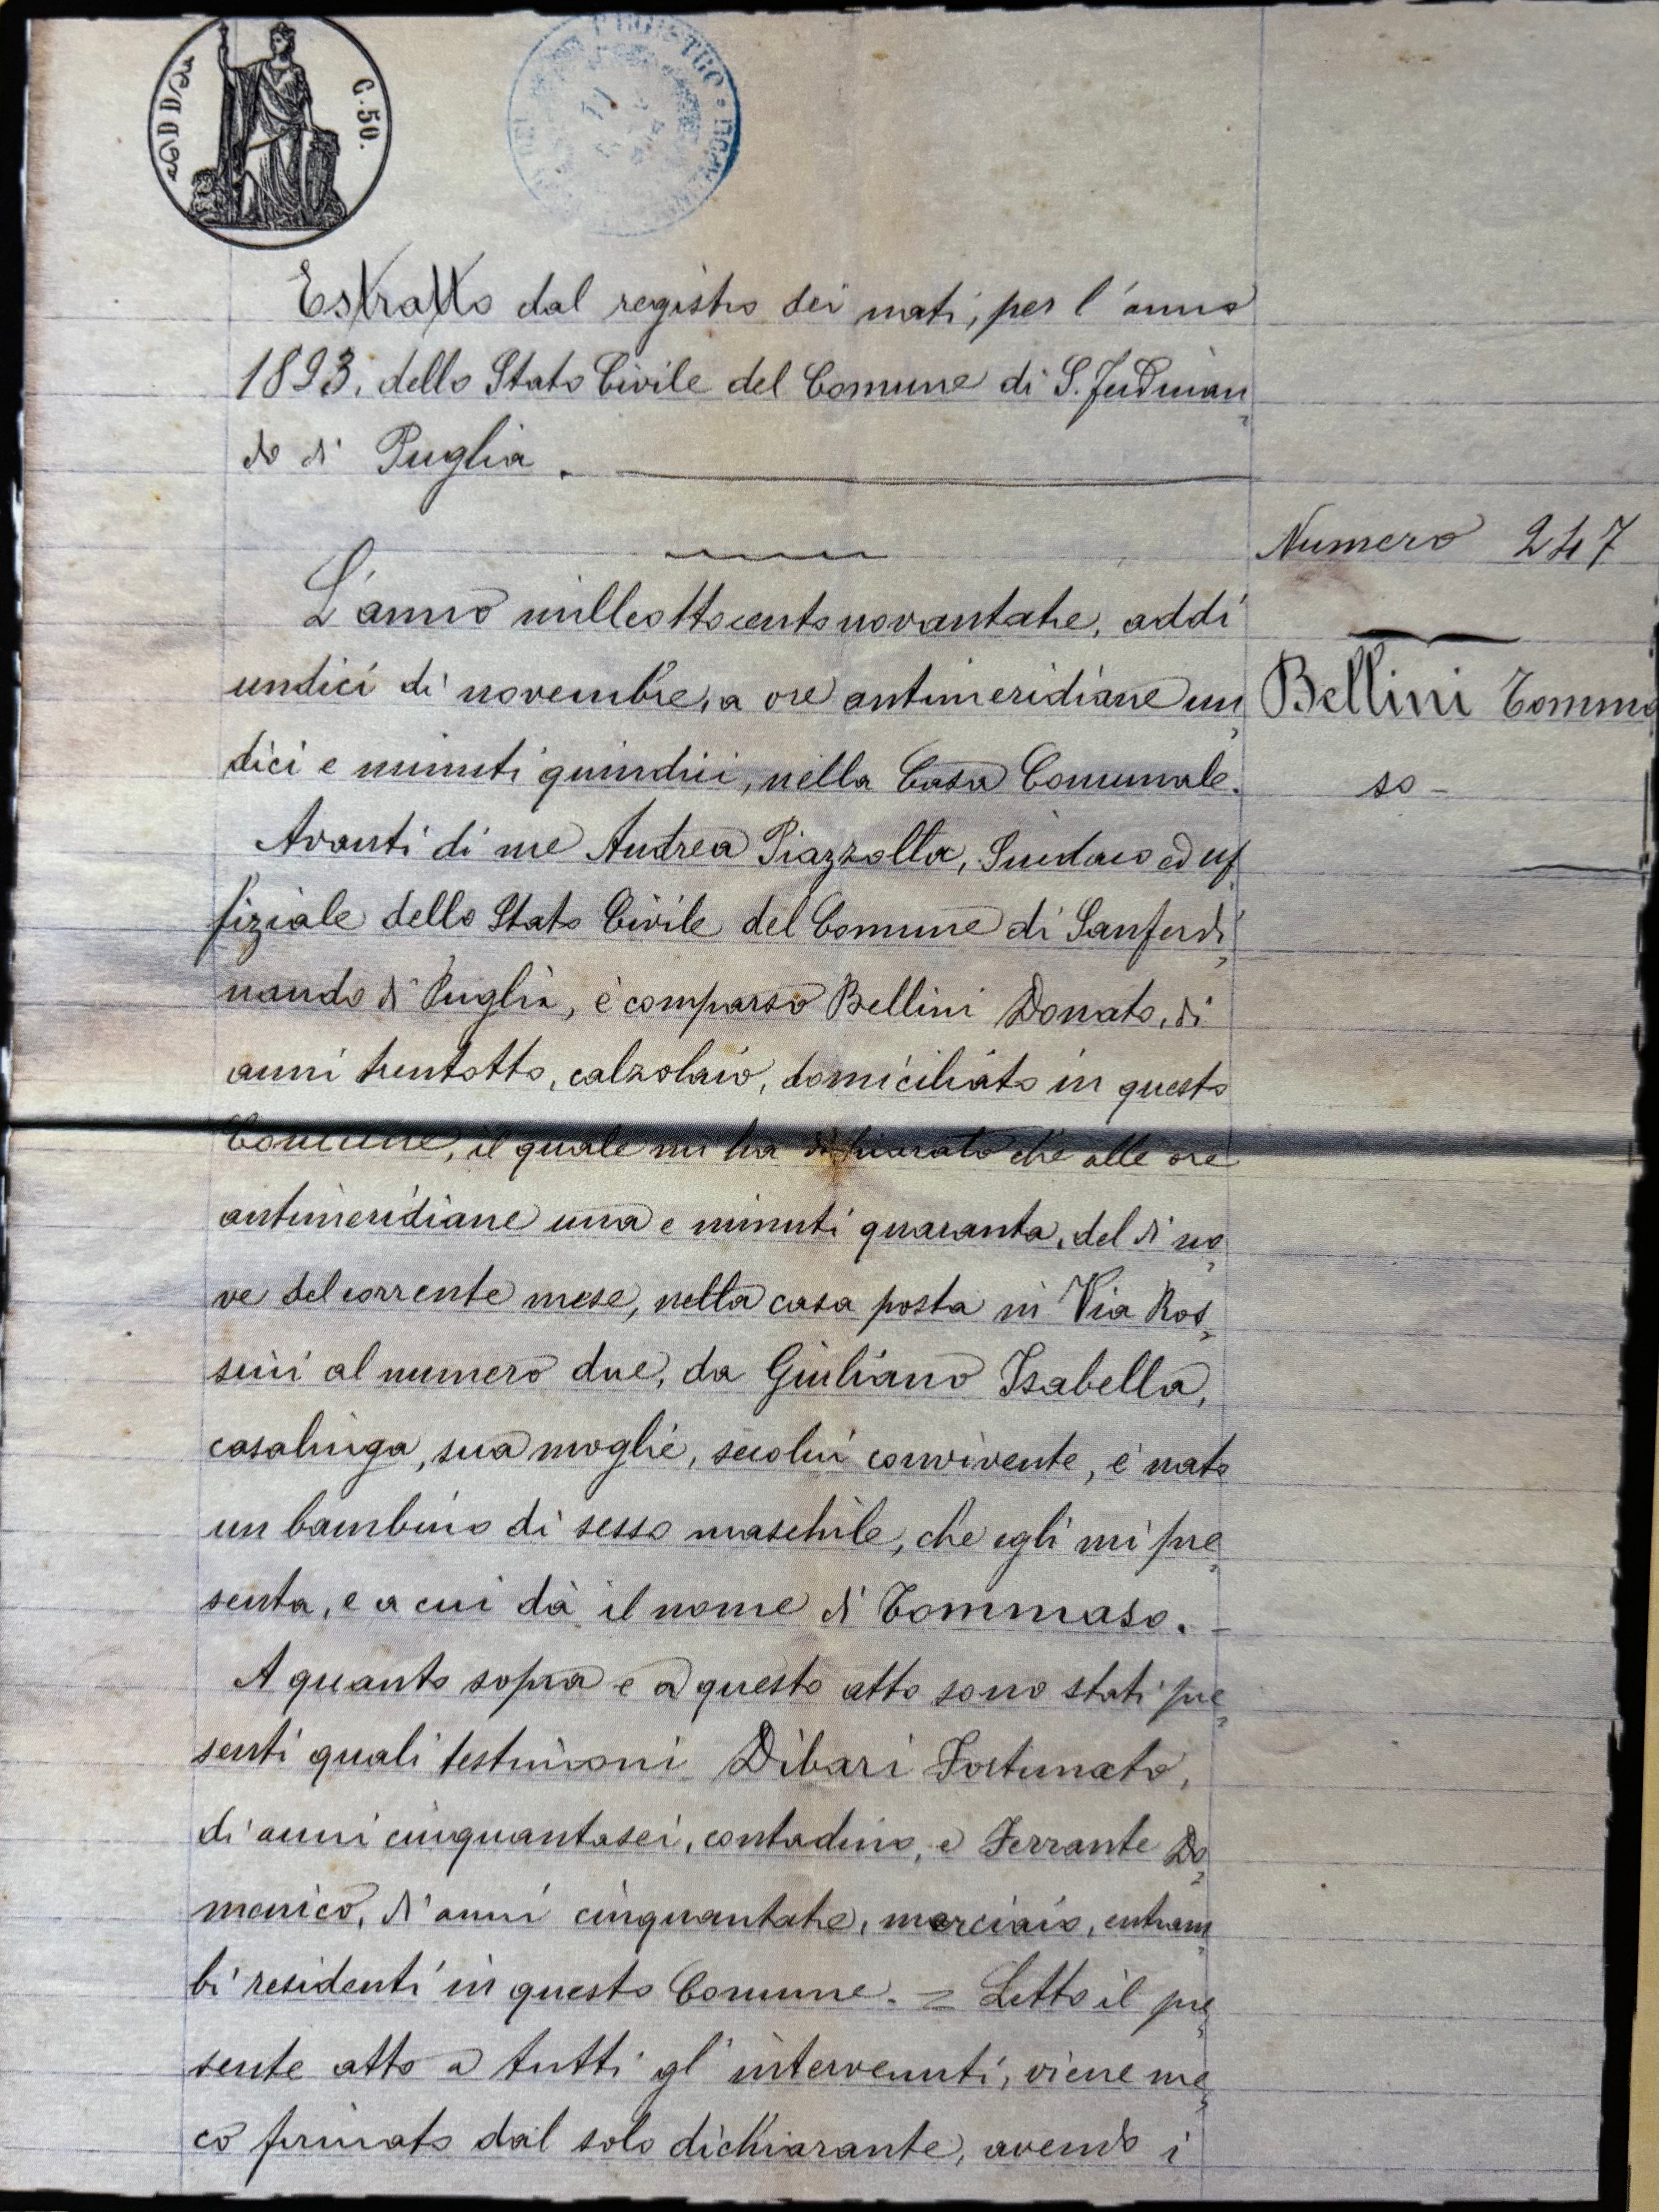 C. 50.
Estratto dal registro dei nati, per l'anno
1893. dello Stato Civile del Comune di S. Ferdinan„
do di Puglia.
Numero 247
L'anno milleottocentonovantatre, addi
undici di novembre, a ore antimeridiane un„
Bellini Tomma
dici e minuti quindici, nella Casa Comunale.
so -
Avanti di me Andrea Piazzolla, Sindaco ed uf„
fiziale dello Stato Civile del Comune di Sanferdi„
nando di Puglia, è comparso Bellini Donato, di
anni trentotto, calzolaio, domiciliato in questo
Comune, il quale mi ha dichiarato che alle ore
antimeridiane una e minuti quaranta, del dì no„
ve del corrente mese, nella casa posta in Via Ros„
sini al numero due, da Giuliano Isabella,
casalinga, sua moglie, secolui convivente, è nato
un bambino di sesso maschile, che egli mi pre„
senta, e a cui dà il nome di Tommaso. -
A quanto sopra e a questo atto sono stati pre„
senti quali testimoni Dibari Fortunato,
di anni cinquantasei, contadino, e Ferrante Do„
menico, di anni cinquantatre, merciaio, entram„
bi residenti in questo Comune. = Letto il pre„
sente atto a tutti gl'intervenuti, viene me„
co firmato dal solo dichiarante, avendo i